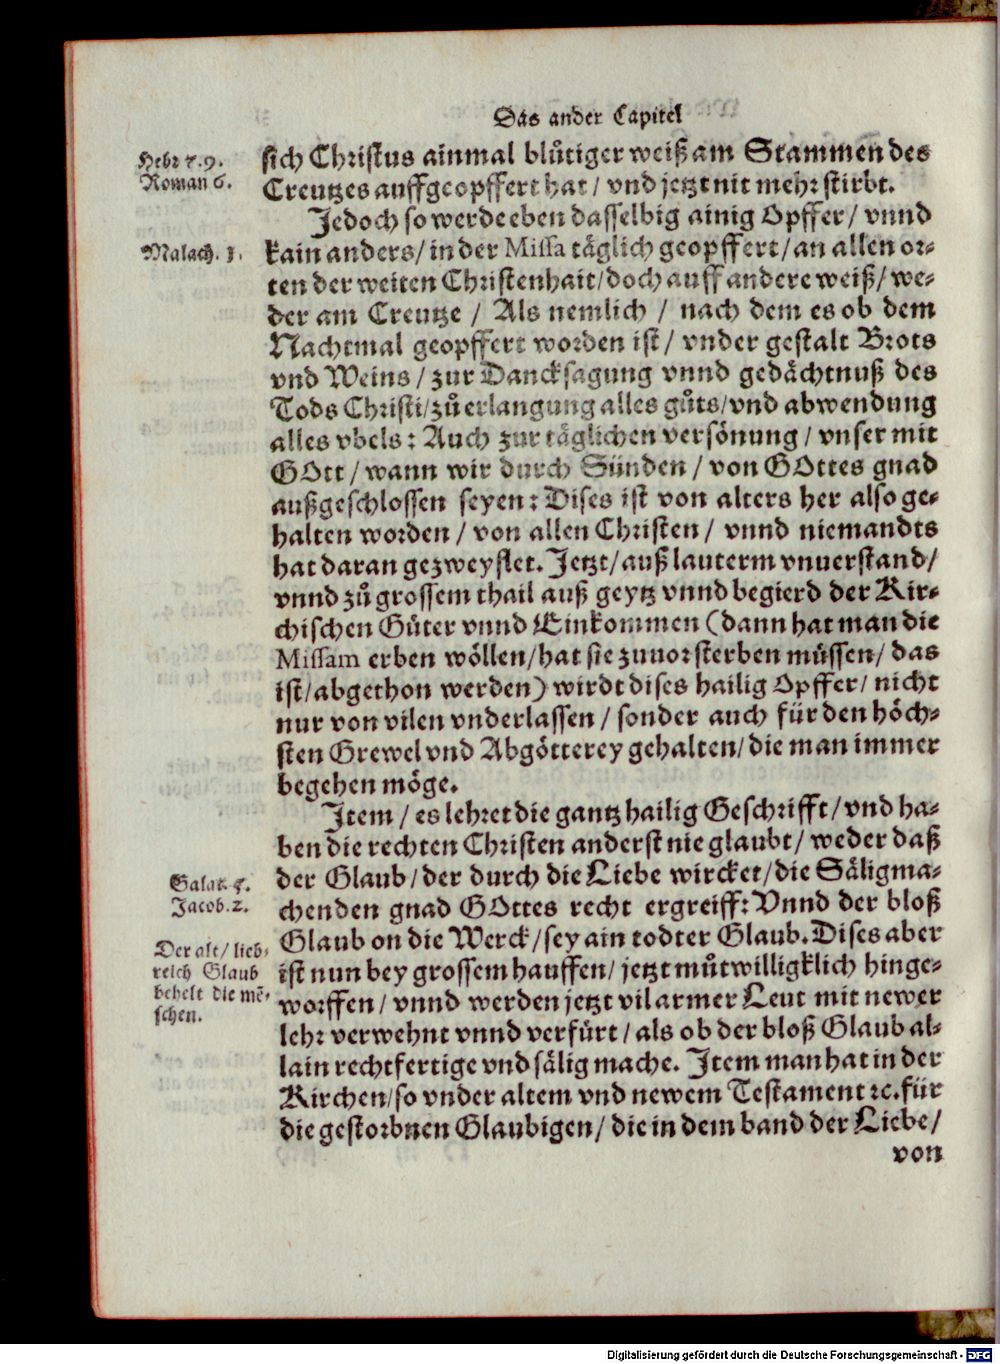 Das ander Capitel
Hebr 7.9.
Roman 6.
sich Christus ainmal blůtiger weiß am Stammen des
Creutzes auffgeopffert hat / vnd jetzt nit mehr stirbt.
Jedoch so werde eben dasselbig ainig Opffer / vnnd
Malach. 1.
kain anders / in der Missa täglich geopffert / an allen or-
ten der weiten Christenhait / doch auff andere weiß / we-
der am Creutze / Als nemlich / nach dem es ob dem
Nachtmal geopffert worden ist / vnder gestalt Brots
vnd Weins / zur Dancksagung vnnd gedächtnuß des
Tods Christi / zů erlangung alles gůts / vnd abwendung
alles vbels : Auch zur täglichen versönung / vnser mit
GOtt / wann wir durch Sünden / von GOttes gnad
außgeschlossen seyen : Dises ist von alters her also ge-
halten worden / von allen Christen / vnnd niemandts
hat daran gezweyflet. Jetzt / auß lauterm vnuerstand /
vnnd zů grossem thail auß geytz vnnd begierd der Kir-
chischen Güter vnnd Einkommen (dann hat man die
Missam erben wöllen / hat sie zuuor sterben müssen / das
ist / abgethon werden) wirdt dises hailig Opffer / nicht
nur von vilen vnderlassen / sonder auch für den höch-
sten Grewel vnd Abgötterey gehalten / die man immer
begehen möge.
Item / es lehret die gantz hailig Geschrifft / vnd ha-
ben die rechten Christen anderst nie glaubt / weder daß
Galat. 5.
Jacob. 2.
der Glaub / der durch die Liebe wircket / die Säligma-
chenden gnad GOttes recht ergreiff: Vnnd der bloß
Der alt / lieb-
reich Glaub
behelt die mē-
schen.
Glaub on die Werck / sey ain todter Glaub. Dises aber
ist nun bey grossem hauffen / jetzt můtwilligklich hinge-
worffen / vnnd werden jetzt vil armer Leut mit newer
lehr verwehnt vnnd verfürt / als ob der bloß Glaub al-
lain rechtfertige vnd sälig mache. Item man hat in der
Kirchen / so vnder altem vnd newem Testament ꝛc. für
die gestorbnen Glaubigen / die in dem band der Liebe /
von
Digitalisierung gefördert durch die Deutsche Forschungsgemeinschaft - DFG